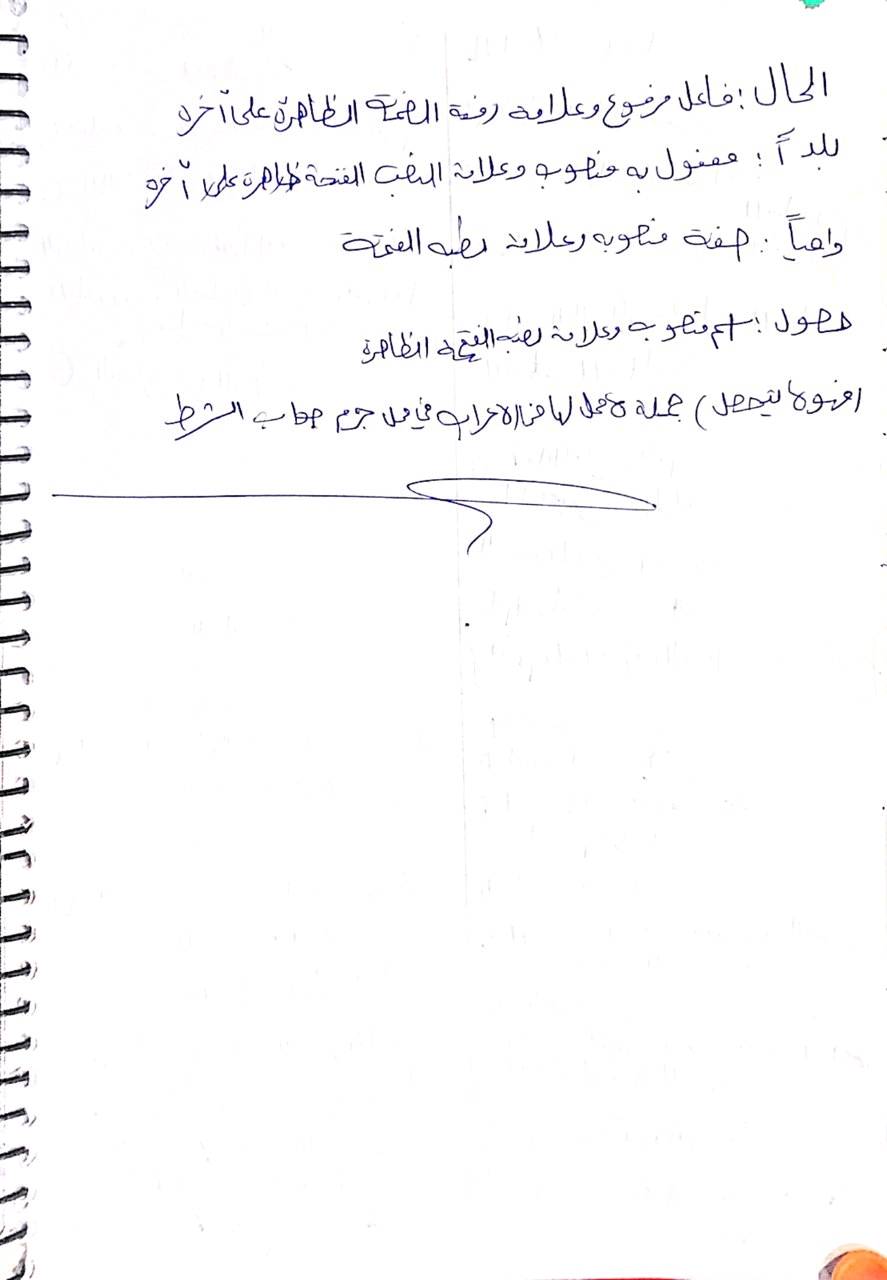 الحال : فاعل مرفوع وعلامة رفعة الضمة الظاهرة على آخره
بلداً : مفعول به منصوب وعلامة النصب الفتحة ظاهرة على آخره
واهياً : صفة منصوبه وعلامة نصبه الفتحة
حصول : اسم منصوب وعلامة نصبه الفتحة الظاهرة
(فهو لا يتحصل) جملة لا محل لها من الاعراب في محل جزم جواب الشرط